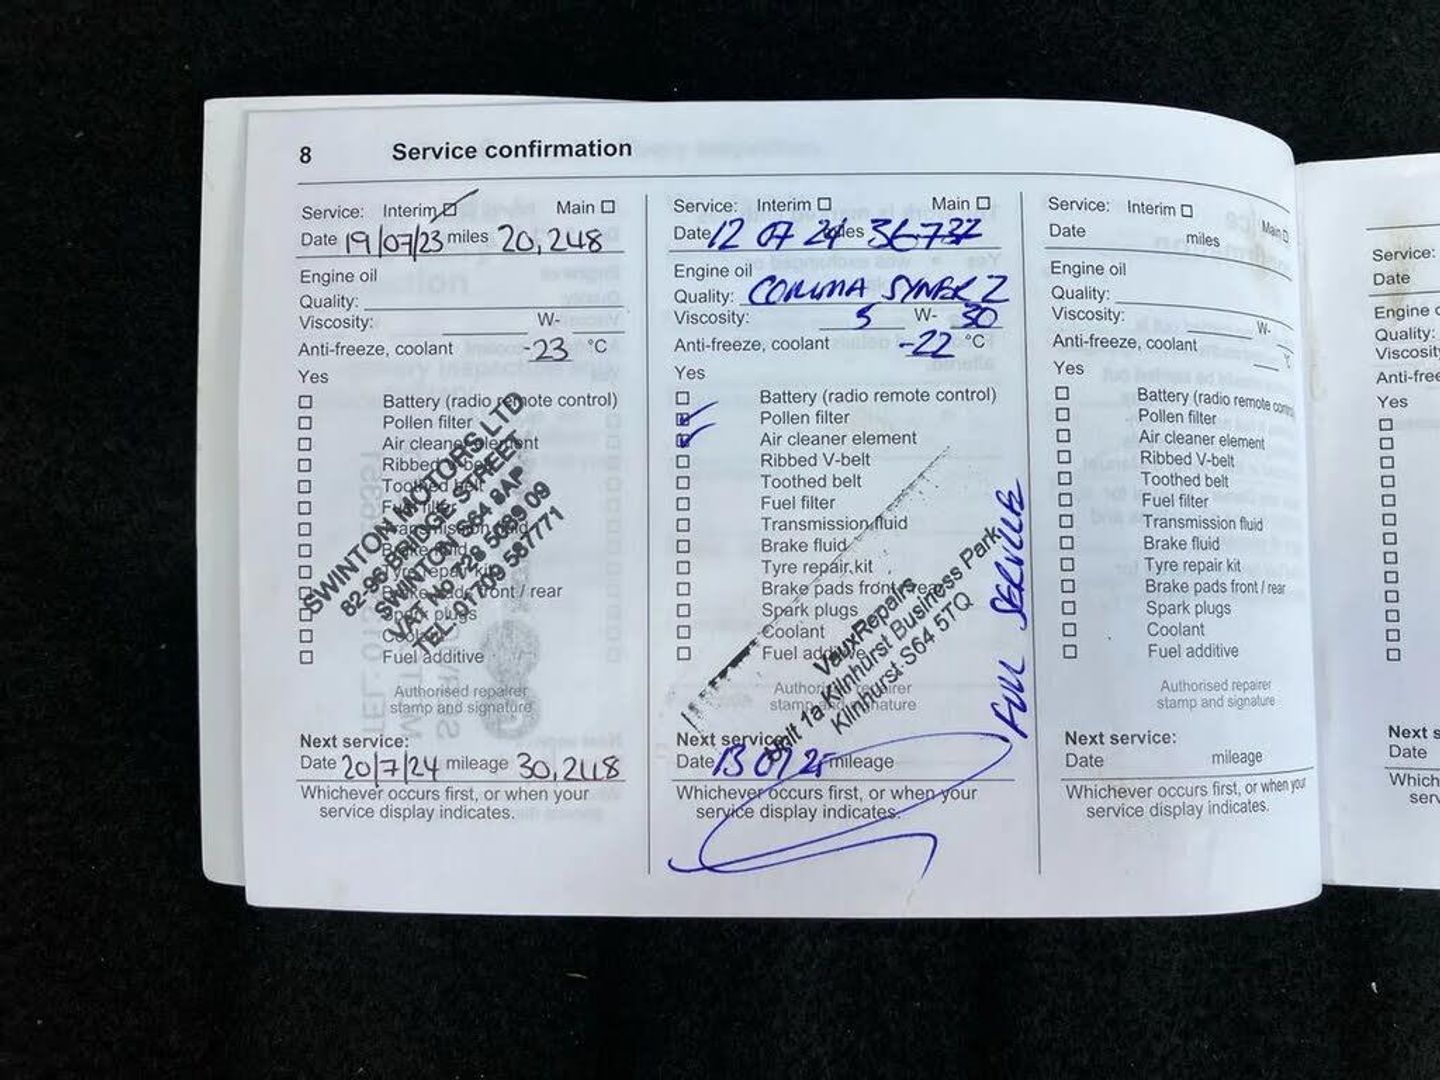 8 Service confirmation
Service: Interim Main
Date 19/07/23 miles 20,248
Engine oil
Quality:
Viscosity: W-
Anti-freeze, coolant -23 °C
Yes
Battery (radio remote control)
Pollen filter
Air cleaner element
Ribbed V-belt
Toothed belt
Fuel filter
Transmission fluid
Brake fluid
Tyre repair kit
Brake pads front / rear
Spark plugs
Coolant
Fuel additive
SWINTON MOTORS LTD
82-96 BRIDGE STREET
SWINTON S64 8AP
VAT No 728 5089 09
TEL: 01709 587771
Authorised repairer
stamp and signature
Next service:
Date 20/7/24 mileage 30,248
Whichever occurs first, or when your
service display indicates.
Service: Interim Main
Date 12 07 24 miles 36737
Engine oil
Quality: COMMA SYNER Z
Viscosity: 5 W- 30
Anti-freeze, coolant -22 °C
Yes
Battery (radio remote control)
Pollen filter
Air cleaner element
Ribbed V-belt
Toothed belt
Fuel filter
Transmission fluid
Brake fluid
Tyre repair kit
Brake pads front / rear
Spark plugs
Coolant
Fuel additive
VauxRepairs
Unit 1a Kilnhurst Business Park
Kilnhurst S64 5TQ
FULL SERVICE
Authorised repairer
stamp and signature
Next service:
Date 13 07 25 mileage
Whichever occurs first, or when your
service display indicates.
Service: Interim Main
Date miles
Engine oil
Quality:
Viscosity: W-
Anti-freeze, coolant °C
Yes
Battery (radio remote control)
Pollen filter
Air cleaner element
Ribbed V-belt
Toothed belt
Fuel filter
Transmission fluid
Brake fluid
Tyre repair kit
Brake pads front / rear
Spark plugs
Coolant
Fuel additive
Authorised repairer
stamp and signature
Next service:
Date mileage
Whichever occurs first, or when your
service display indicates.
Service:
Date
Engine
Quality:
Viscosity
Anti-free
Yes
Next s
Date
Which
serv